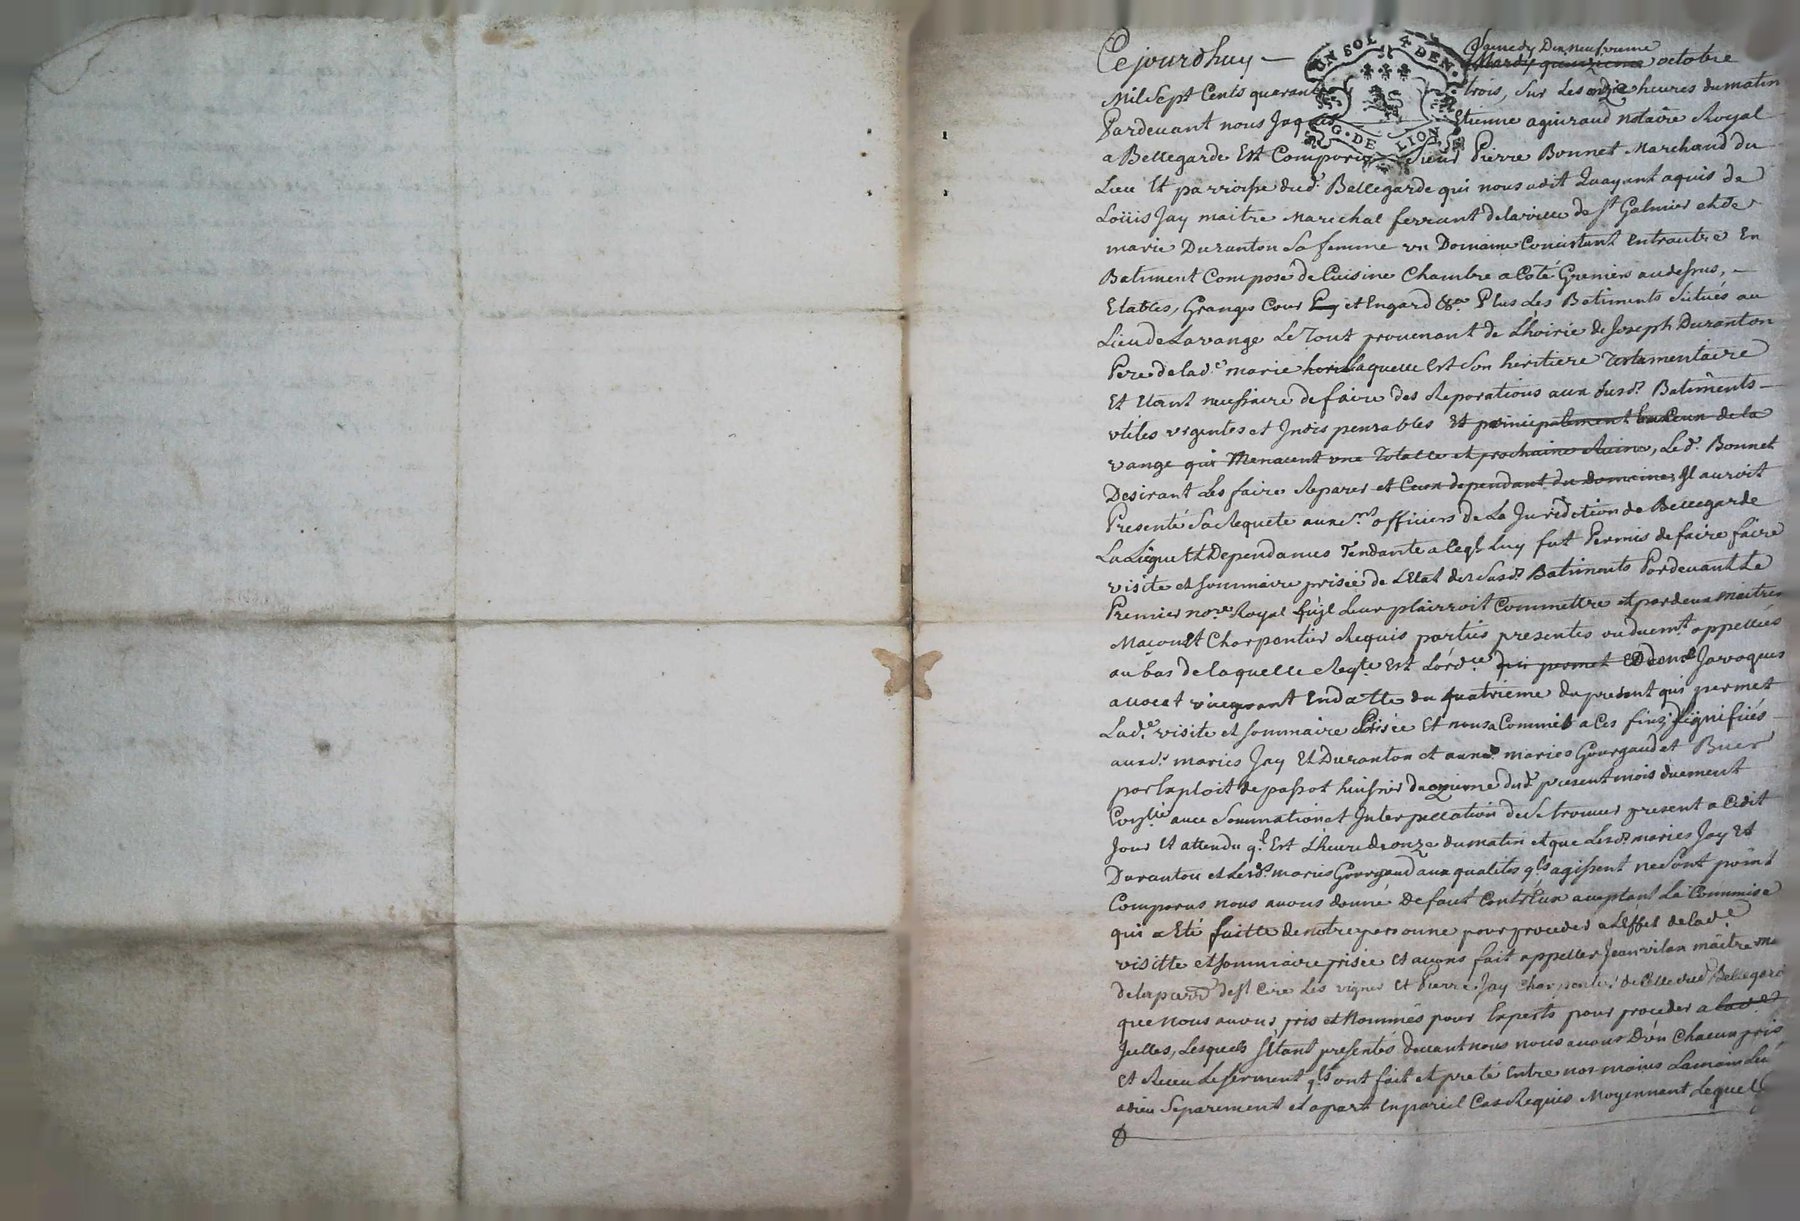 UN SOL 4 DEN.
G. DE LION
Samedy Dix neufvieme
Cejourdhuy — Mardy quinzieme octobre
Mil Sept Cents quarante trois, sur les onze heures du matin
Pardevant nous Jaques Etienne aguiraud notaire Royal
a Bellegarde Est Comparu Sieur Pierre Bonnet Marchand du
Lieu Et parroisse dud. Bellegarde qui nous a dit Quayant aquis de
Loüis Jay maitre Marechal ferrant de la ville de St Galmier et de
marie Duranton Sa femme un Domaine Consistant Entrautre En
Batiment Composé de Cuisine Chambre a Coté Greniers au dessus, —
Etables, Granges Cour et Engard &a. Plus Les Batiments Situés au
Lieu de Lavange Le Tout provenant de L'hoirie de Joseph Duranton
Pere de lad.e marie laquelle Est Son heritiere Testamentaire
Et Etant necessaire de faire des Reparations aux susd. Batiments —
utiles urgentes et Indispensables Et principalement de la
vange qui Menacent une Totalle et prochaine Ruine, Led. Bonnet
Desirant Les faire Reparer et Ceux dependant du domaine Il auroit
Presenté Sa Requete aux officiers de La Juridiction de Bellegarde
La Liegue Et Dependances Tendante a Ceql Luy fut Permis de faire faire
visite et sommaire prisée de L'Etat des Susd. Batiments Pardevant Le
Premier nore Royal qu'il Leur plairroit Commettre et par deux maitres
Macon Et Charpentier Requis parties presentes ou duemt appellées
au bas de laquelle Reqte Est L'ordce qui permet Javogues
avocat vicegerant En datte du quatrieme du present qui permet
Lad.e visite et sommaire Prisée Et nous a Commis a Ces fins signifiés
aux d. mariés Jay Et Duranton et aux d. mariés Gourgaud et
par Exploit de passot huissier du onzieme dud. present mois duement
Conllé avec Sommation et Interpellation de Se trouver present a Cedit
Jour Et attendu ql Est L'heure de onze du matin et que Lesd. mariés Jay Et
Duranton et Lesd. mariés Gourgaud aux qualités qls agissent ne Sont point
Comparus nous avons donné Defaut Contr'Eux acceptant La Commise
qui a Eté faitte de notre personne pour proceder a L'Effet de lad.e
visitte et sommaire prisée Et avons fait appeller Jean vilax maitre
de la parr. de St Cire Les vignes Et Pierre Jay Charpentier de Celle dud. Bellegarde
que nous avons pris et Nommés pour Experts pour proceder a lad.e
Icelles, Lesquels S'Etant presentés devant nous nous avons D'En Chacun pris
Et Receu Le Serment qls ont fait et preté Entre nos mains La main Levé
a dieu Separement et apart En pareil Cas Requis Moyennant Lequel